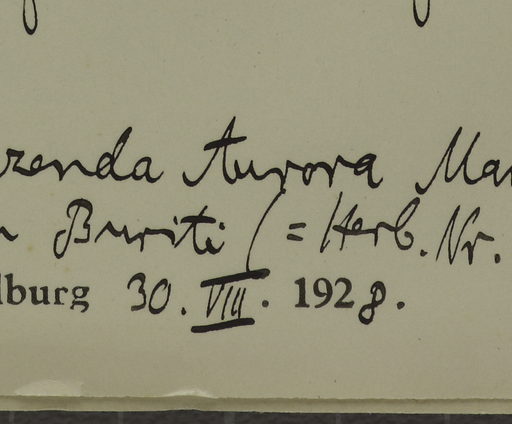 zenda Aurora Mar
n Buriti (= Herb. Nr.
lburg 30. VIII. 1928.